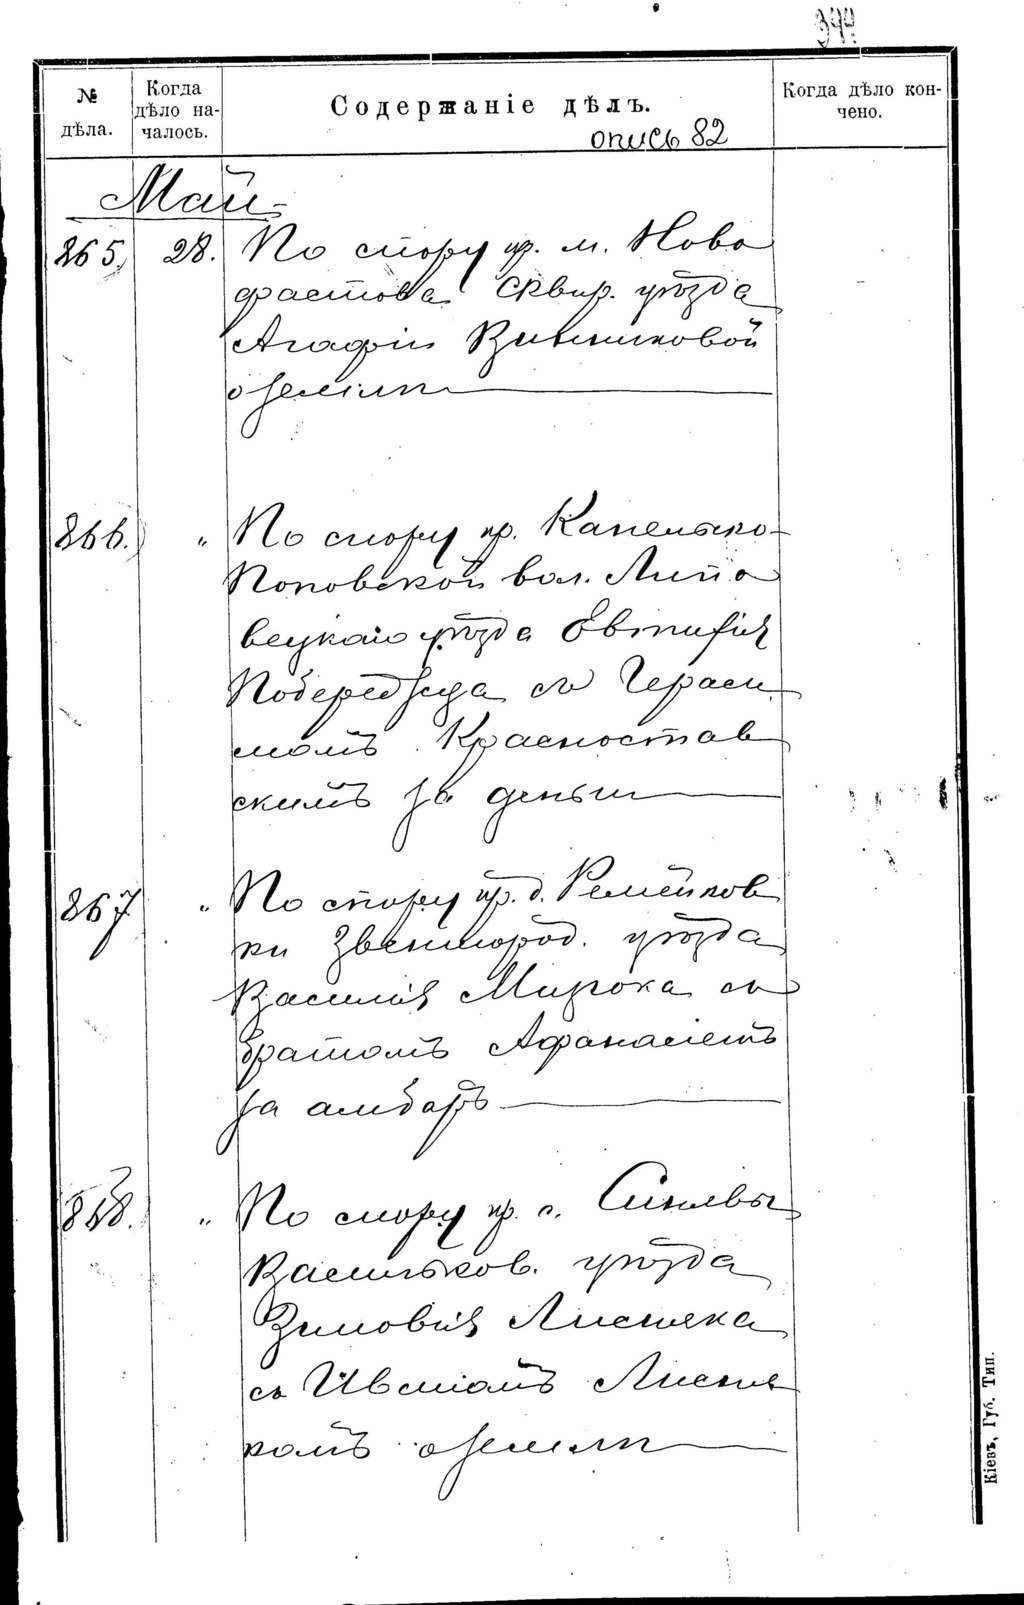 344
№ дѣла.
Когда дѣло на-
чалось.
Содержаніе дѣлъ.
Когда дѣло кон-
чено.
опись 82
Май
865. 28. По спору кр. м. Ново
фастова Сквир. уѣзда
Агафіи Винниковой
о землѣ
866. " По спору кр. Капельско-
Поповской вол. Липо
вецкаго уѣзда Евтифія
Побережца съ Гераси
момъ Красностав
скимъ за деньги
867 " По спору кр. д. Ремейков
ки Звенигород. уѣзда
Василія Мизюка съ
братомъ Афанасіемъ
за амбаръ
868. " По спору кр. с. Синявы
Васильков. уѣзда
Зиновія Лисняка
съ Ивсіомъ Лисня
комъ о землѣ
Кіевъ, Губ. Тип.